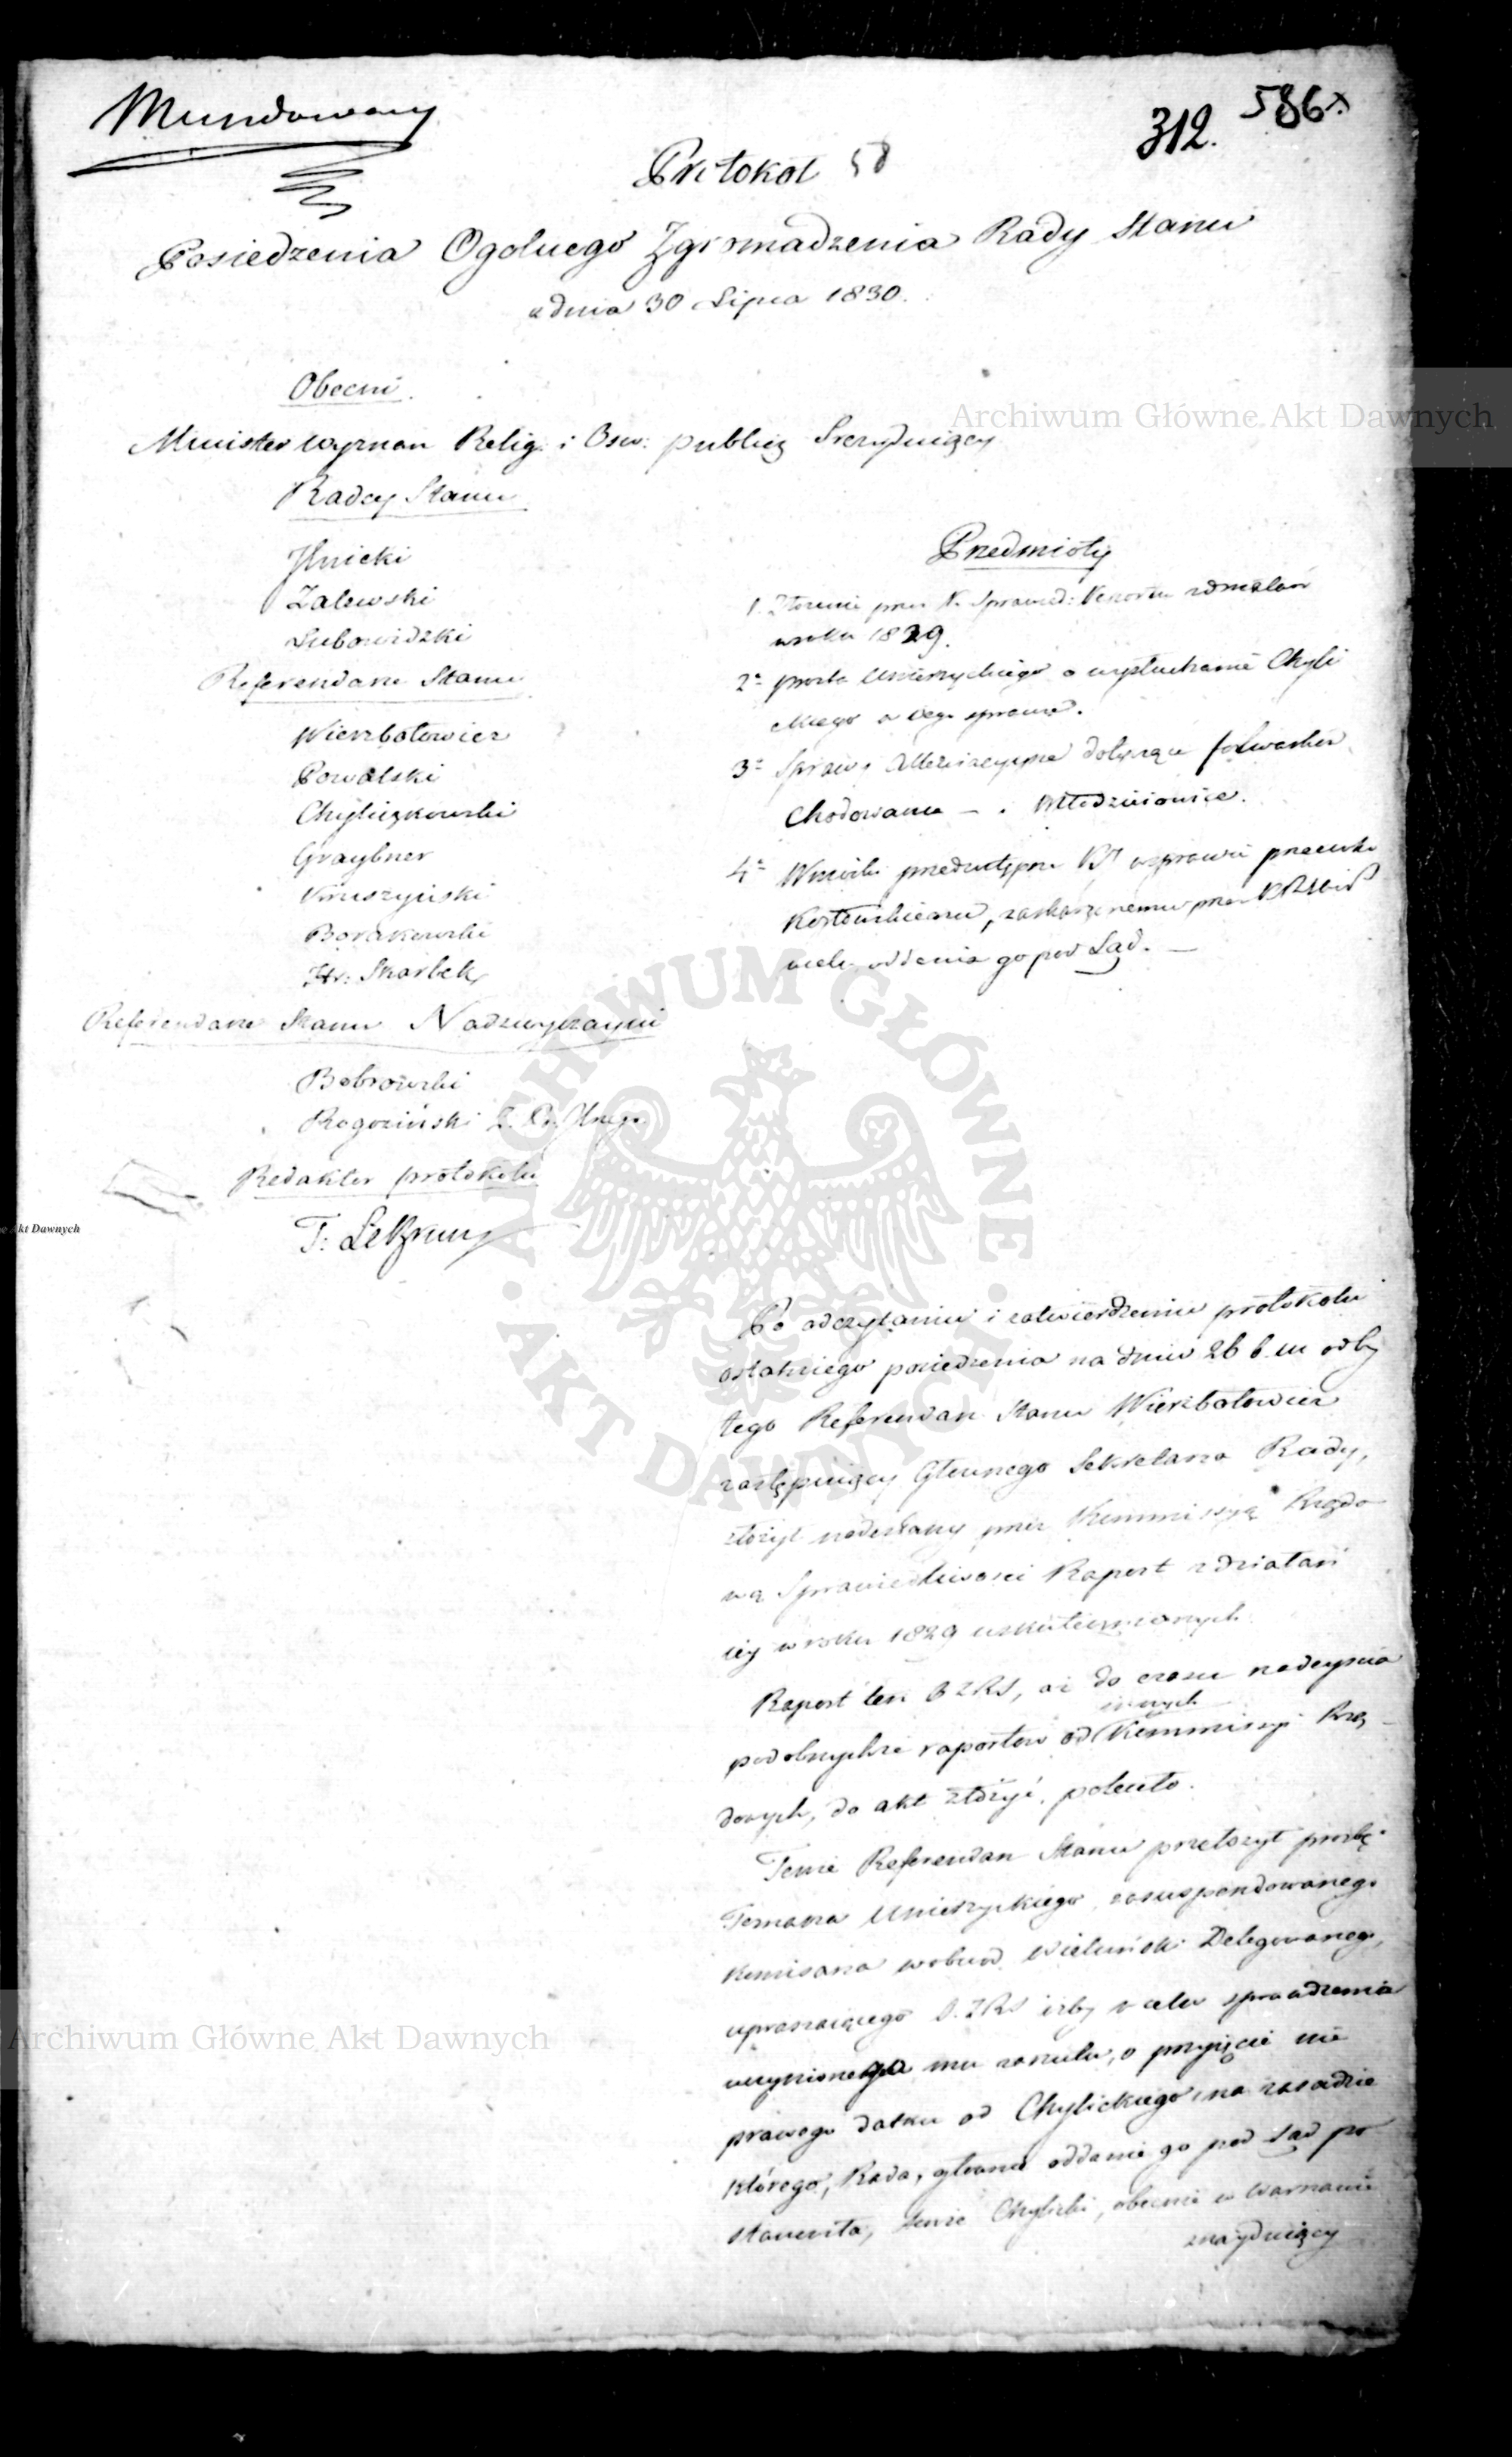 Mundowany
312. 586
Protokół 58
Posiedzenia Ogolnego Zgromadzenia Rady Stanu
z dnia 30 Lipca 1830.
Obecni.
Archiwum Główne Akt Dawnych
Minister Wyznan Relig: i Osw: publicz Prezyduiący
Radcy Stanu
Zalewski
Lubowidzki
Referendarze Stanu
Wierzbołowicz
Chyliczkowski
Graybner
Kruszyński
Hr: Skarbek
Referendarze Stanu Nadzwyczayni
Bobrowski
Rogoziński
Redaktor protokołu
T: LeBrun
Akt Dawnych
Przedmioty
1. Złożenie przez K. Sprawied: z działań
w roku 1829.
2° prośba Unierzyckiego o wysłuchanie Chyli
ckiego w iego sprawie.
3° Sprawy dotyczące folwarków
Chodowania
4° Wnioski przedwstępne w sprawie przeciwko
zaskarżonemu przez
w celu oddania go pod Sąd. —
ARCHIWUM GŁÓWNE AKT DAWNYCH
Po odczytaniu i zatwierdzeniu protokołu
ostatniego posiedzenia na dniu 26 b. m odby
tego Referendarz Stanu Wierzbołowicz
zastępuiący Głównego Sekretarza Rady,
złożył nadesłany przez Kommissyą Rządo
wą Sprawiedliwości Raport z działań
iey w roku 1829 uskutecznionych.
Raport ten OZRS, aż do czasu nadeyścia
innych
podobnychże raportow od Kommissyi Rzą
dowych, do akt złożyć, poleciło.
Tenże Referendarz Stanu przełożył prośbę
Tomasza Unierzyckiego zasuspendowanego
Komisarza w obwod. Wieluński Delegowanego,
upraszaiącego O. ZRS iżby w celu sprawdzenia
uczynionego mu zarzutu, o przyięcie nie
prawego datku od Chylickiego, na zasadzie
którego, Rada, główne oddanie go pod Sąd po
stanowiła, tenże Chylicki, obecnie w Warszawie
znayduiący
Archiwum Główne Akt Dawnych